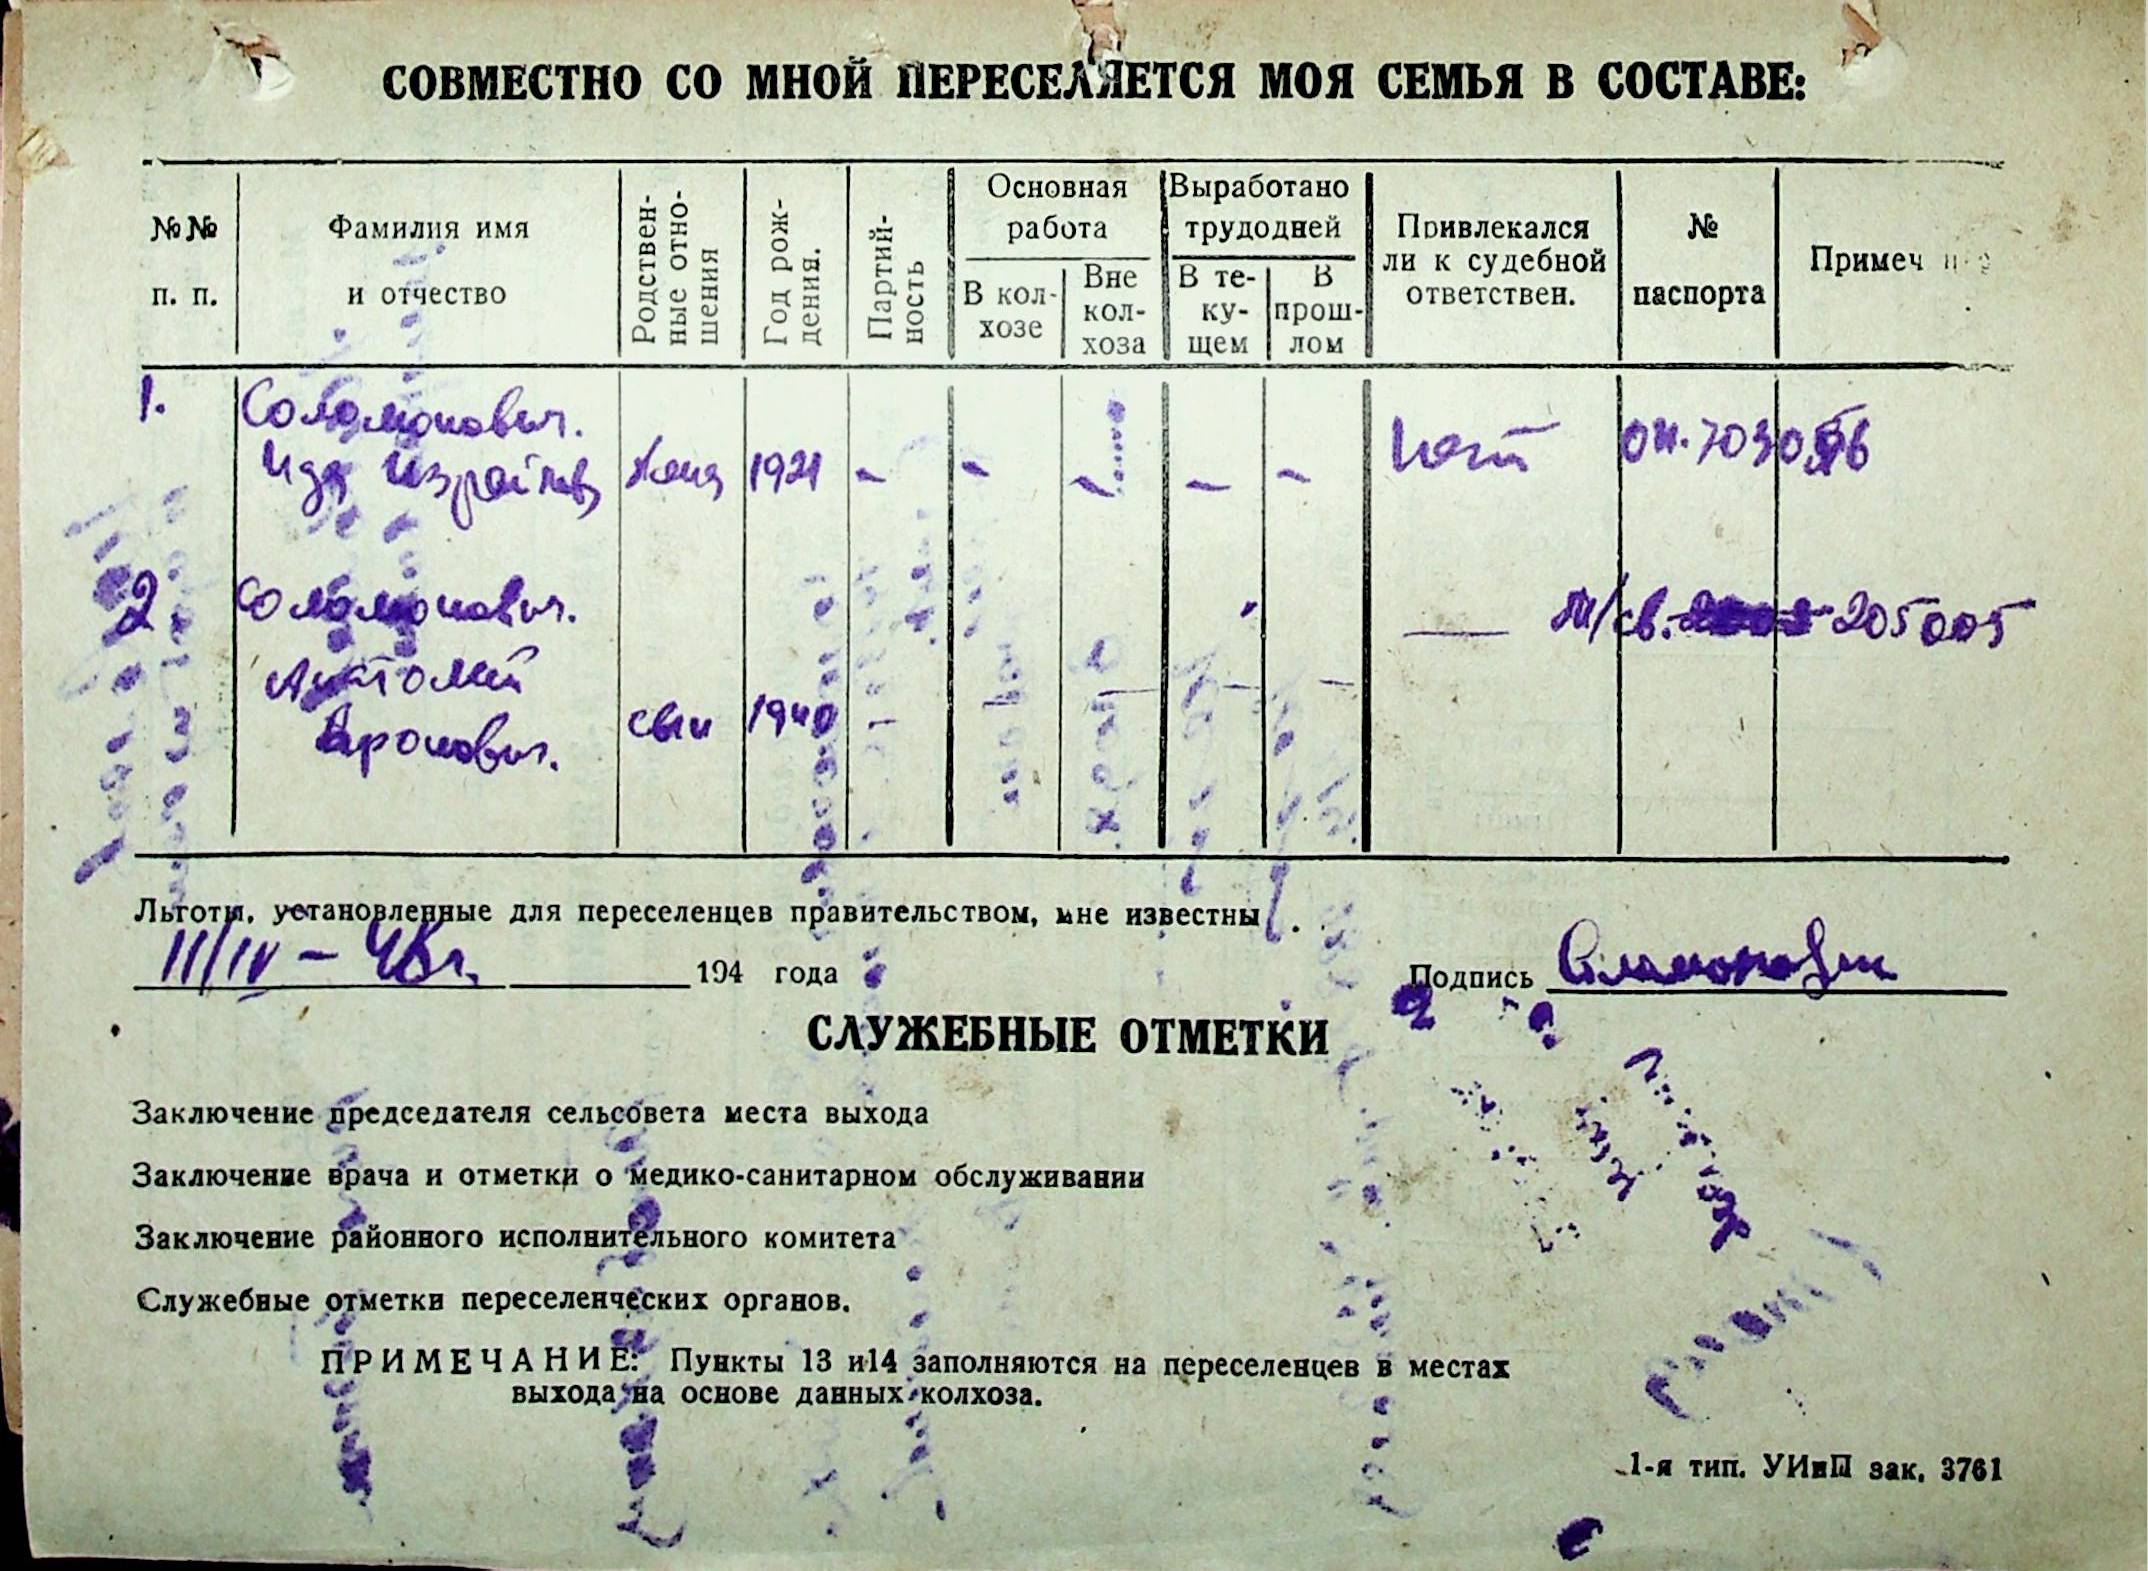 СОВМЕСТНО СО МНОЙ ПЕРЕСЕЛЯЕТСЯ МОЯ СЕМЬЯ В СОСТАВЕ:
№№ п. п.
Фамилия имя и отчество
Родствен-ные отно-шения
Год рож-дения.
Партий-ность
Основная работа
В кол-хозе
Вне кол-хоза
Выработано трудодней
В те-ку-щем
В прош-лом
Привлекался ли к судебной ответствен.
№ паспорта
Примеч
1.
Соломонович.
Ида Израйлев
жена
1921
-
-
-
-
-
нет
2
Соломонович.
Анатолий
Аронович.
сын
1940
-
205005
Льготы, установленные для переселенцев правительством, мне известны.
II/IV - 48 г. 194 года
Подпись
СЛУЖЕБНЫЕ ОТМЕТКИ
Заключение председателя сельсовета места выхода
Заключение врача и отметки о медико-санитарном обслуживании
Заключение районного исполнительного комитета
Служебные отметки переселенческих органов.
ПРИМЕЧАНИЕ: Пункты 13 и 14 заполняются на переселенцев в местах
выхода на основе данных колхоза.
1-я тип. УИиП зак. 3761